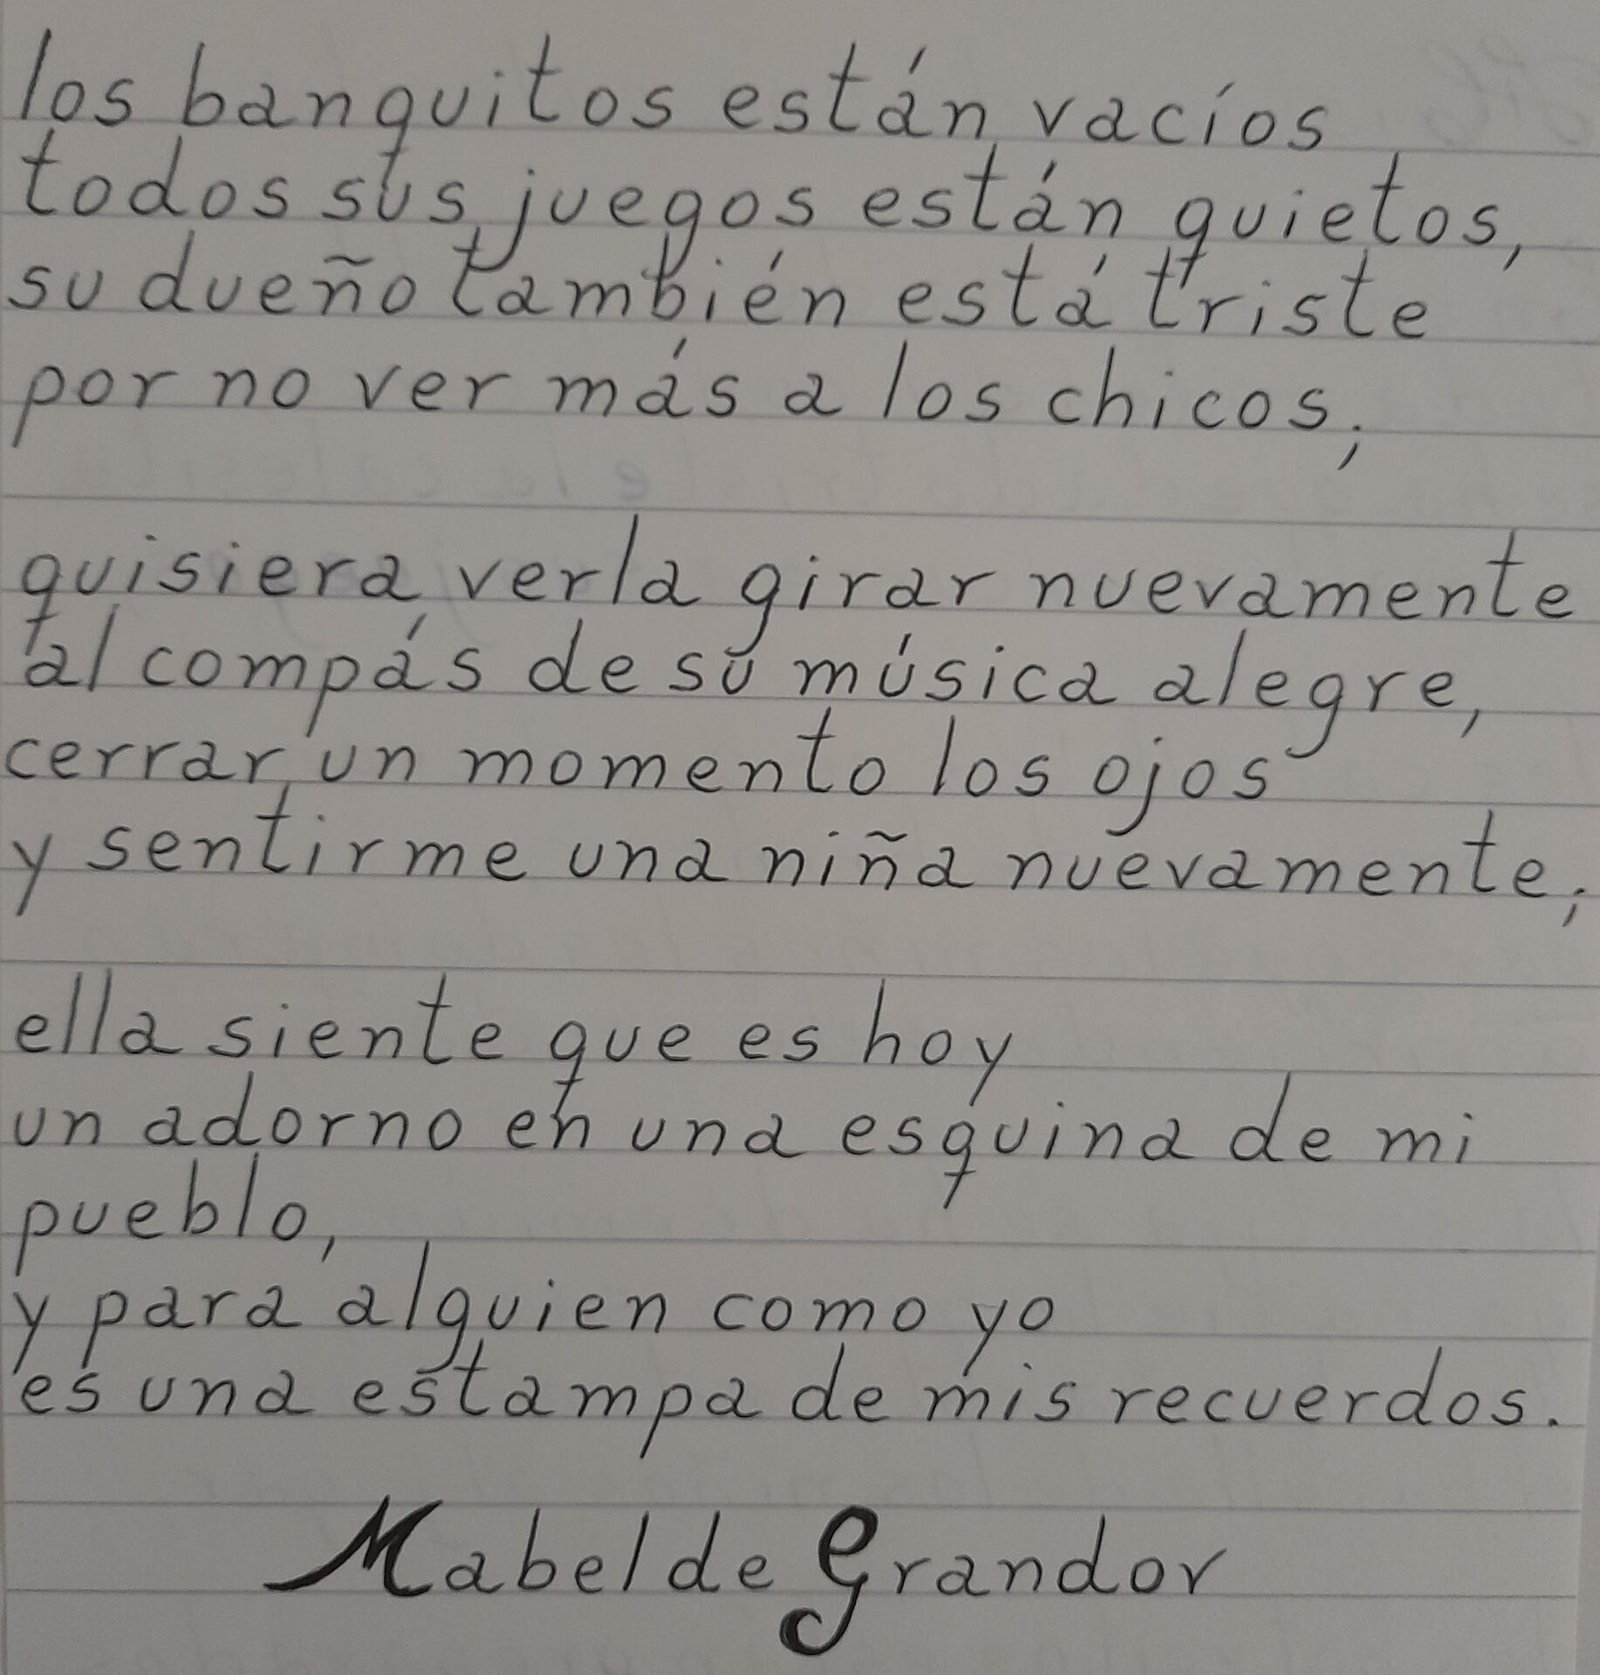 los banquitos están vacíos
todos sus juegos están quietos,
su dueño también está triste
por no ver más a los chicos;
quisiera verla girar nuevamente
al compás de su música alegre,
cerrar un momento los ojos
y sentirme una niña nuevamente;
ella siente que es hoy
un adorno en una esquina de mi
pueblo,
y para alguien como yo
es una estampa de mis recuerdos.
Mabel de Grandov